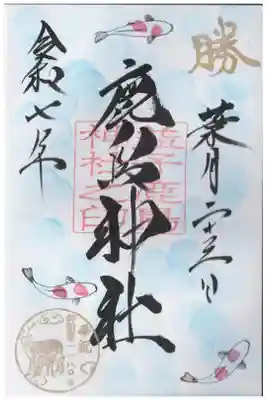 勝
葉月二十三日
鹿島神社
神社之印
令和七年